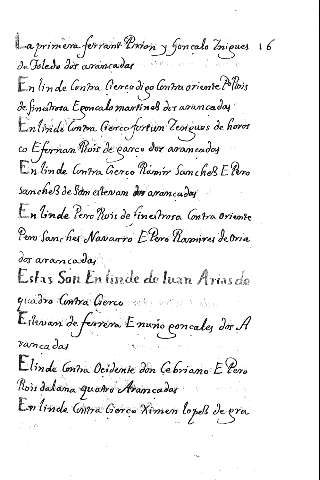 La primera ferrant Prion y Gonçalo Inigues 16
de Toledo dos arancadas
En linde Contra Cierco digo Contra oriente Po Rois
de finestrosa E gonçalo martines dos arancadas
En linde Contra Cierco fortun Zenigues de horos
co E fernan Ruis de garco dos arancadas
En linde Contra Cierco Ramir Sanches E Pero
Sanches de San estevan dos arancadas
En linde Pero Ruis de finestrosa Contra oriente
Pero Sanches Navarro E Pero Ramires de Oria
dos arancadas
Estas Son En linde de Iuan Arias de
quadro Contra Cierco
Estevan de ferrera E nuño goncales dos A
rancadas
E linde Contra Ocidente don Cebriano E Pero
Rois dalama quatro Arancadas
En linde Contra Cierco Ximen lopes de gra